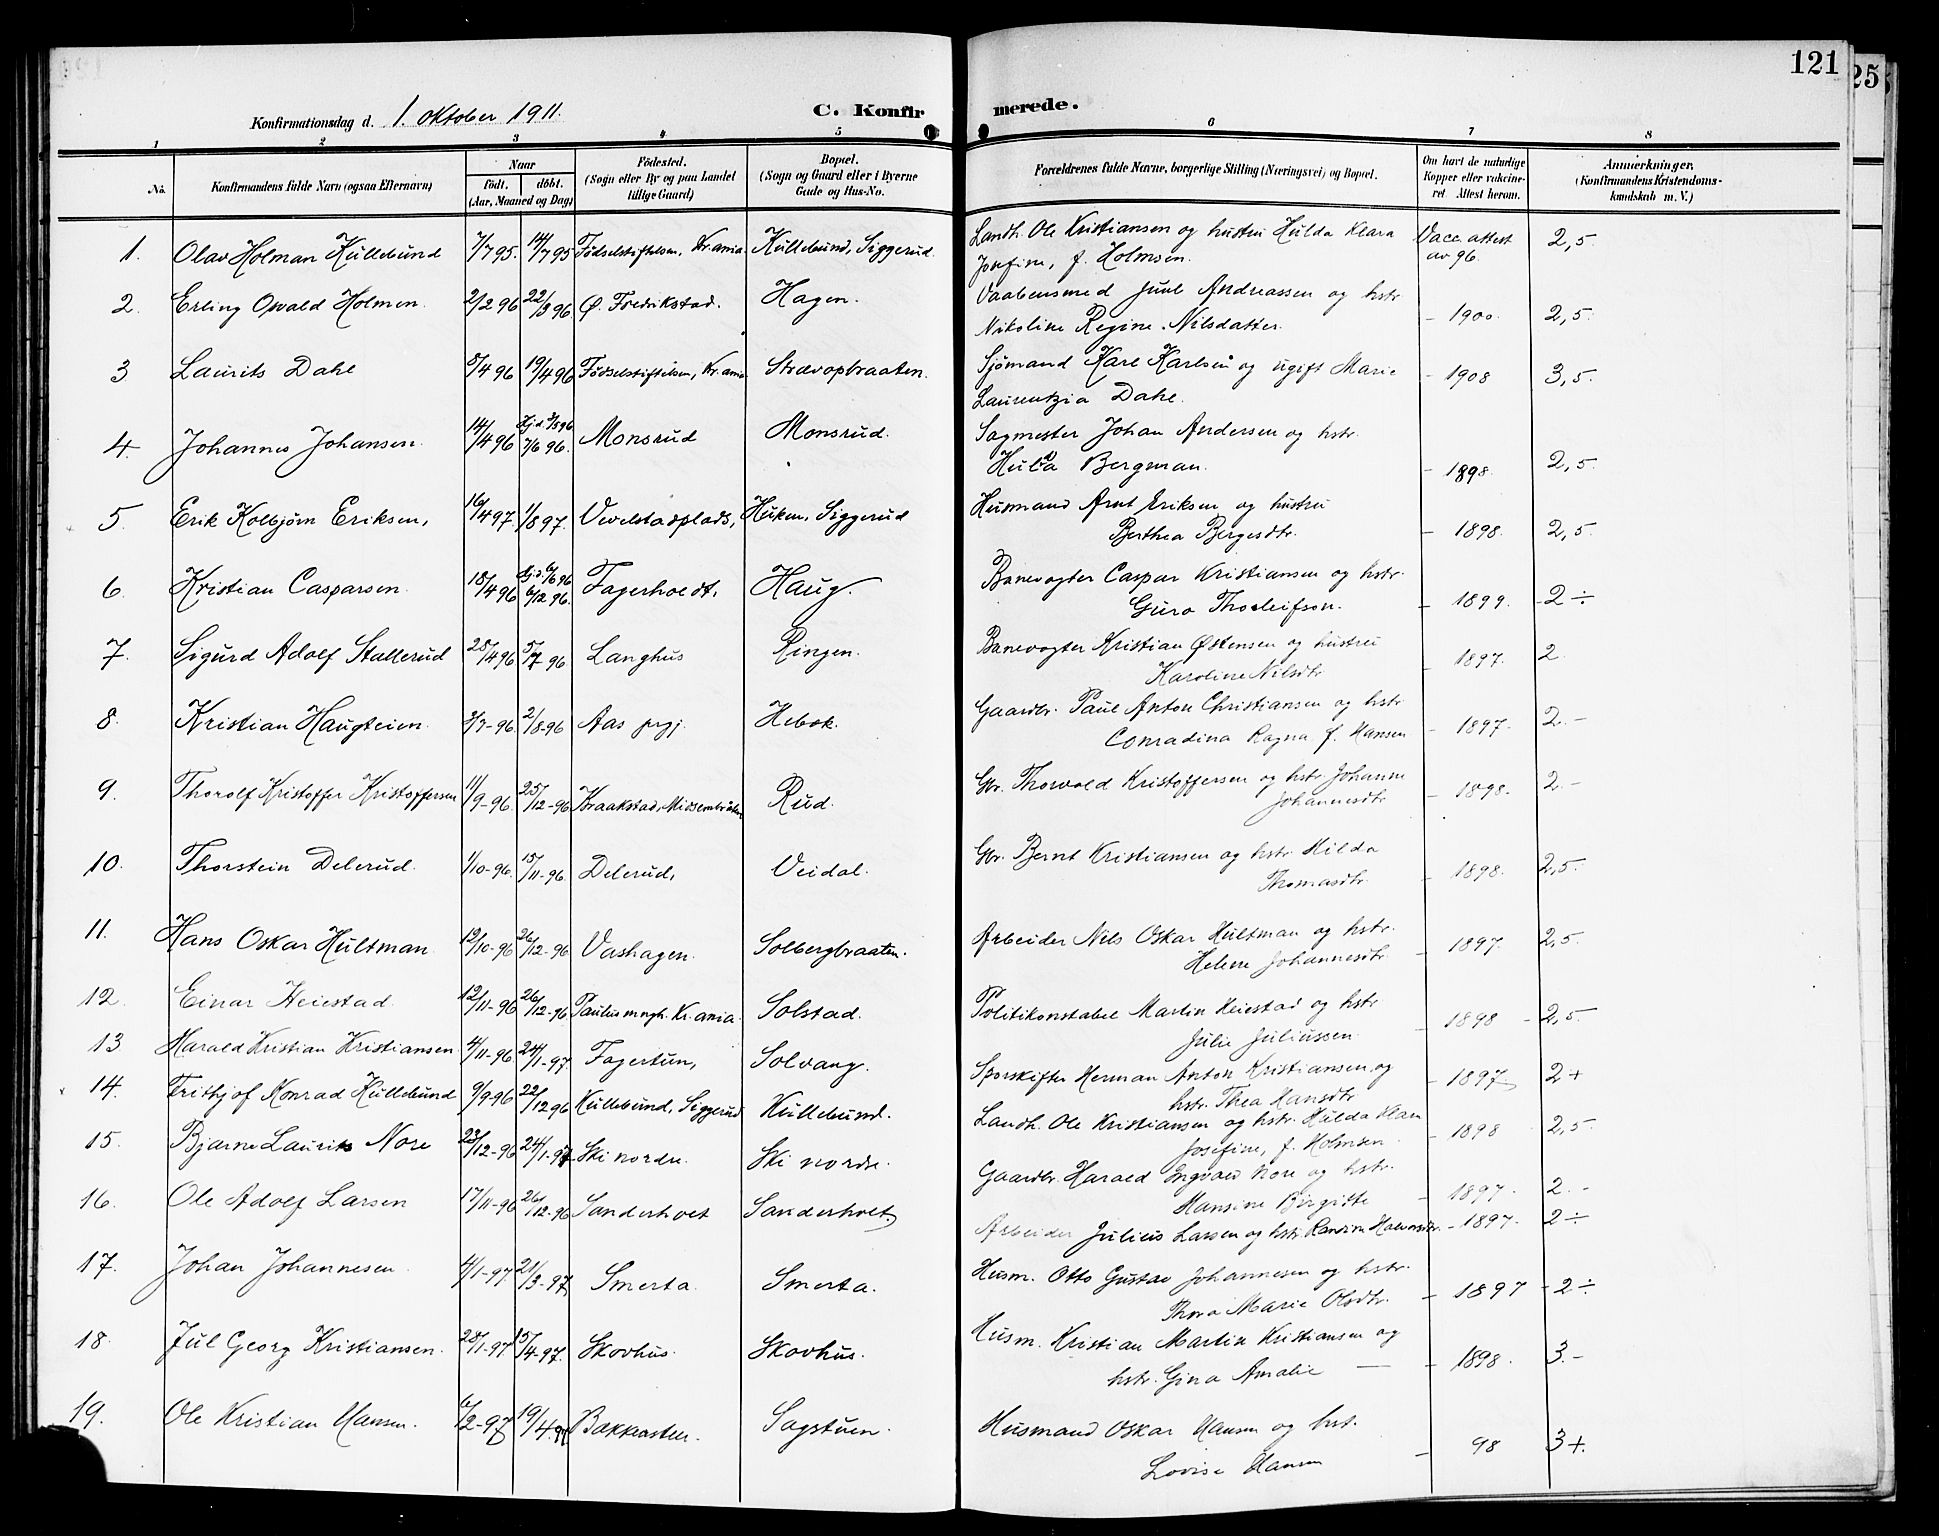 121
25
Konfirmationsdag d. 1. oktober 1911.
C. Konfirmerede.
1 2 3 4 5 6 7 8
No. Konfirmandens fulde Navn (ogsaa Efternavn) Naar født. døbt. (Aar, Maaned og Dag) Fødested. (Sogn eller By og paa Landet tillige Gaard) Bopæl. (Sogn og Gaard eller i Byerne Gade og Hus-No. Forældrenes fulde Navne, borgerlige Stilling (Næringsvei) og Bopæl. Om havt de naturlige Kopper eller vakcineret. Attest herom. Anmærkninger, (Konfirmandens Kristendomskundskab m. V.)
1. Olav Holman Kullebund 7/7 95. 14/7 95 Fødselsstiftelsen, Kr.ania Kullebund, Siggerud. Landh. Ole Kristiansen og hustru Hulda Klara Josefine, f. Holmsen. Vacc. attest av 96. 2,5
2. Erling Osvald Holmen. 2/2 96 22/3 96. Ø. Fredrikstad. Hagen. Vaabensmed Juul Andreassen og hstr Nikoline Regine Nilsdatter. - 1900. 2,5
3 Laurits Dahl 8/4 96 19/4 96 Fødselsstiftelsen, Kr.ania Strævopbraaten. Sjømand Karl Karlsen og ugift Marie Laurentzia Dahl. - 1908 3,5.
4. Johannes Johansen. 14/4 96 Hj.d. 3/5 96 7/6 96. Monsrud Monsrud. Sagmester Johan Andersen og hstr. Hulda Bergman. - 1898. 2,5.
5. Erik Kolbjørn Eriksen, 16/4 97. 1/8 97. Vevelstadplads, Huken, Siggerud Husmand Arnt Eriksen og hustru Berthea Bergesdtr. - 1898. 2,5.
6. Kristian Casparsen. 18/4 96 6/12 96. Fagerholdt, Haug. Banevogter Caspar Kristiansen og hstr. Guro Thorleifson. - 1899. 2 ÷
7. Sigurd Adolf Stallerud 28/4 96 5/7 96 Langhus Ringen. Banevogter Kristian Østensen og hustru Karoline Nilsdtr - 1897. 2
8. Kristian Haugteien. 2/7-96 2/8-96 Aas prgj. Hebok. Gaardbr. Paul Anton Christiansen og hstr Conradina Ragna f. Hansen - 1897. 2.-
9. Thorolf Kristoffer Kristoffersen 11/9-96. 25/12-96 Kraakstad, Rud. Gbr. Thorvald Kristoffersen og hstr Johanne Johannesdtr - 1898. 2.-
10. Thorstein Delerud. 1/10-96. 15/11-96. Delerud, Veidal. Gbr. Bernt Kristiansen og hstr Hilda Thomasdtr. - 1898. 2,5.
11. Hans Oskar Hultman. 12/10-96 26/12-96 Vashagen. Solbergbraaten. Arbeider Nils Oskar Hultman og hstr. Helene Johannesdtr. - 1897. 2,5.
12. Einar Heiestad. 12/11-96 26/12-96 Paulus mngh. Kr.ania. Solstad. Politikonstabel Martin Heiestad og hstr Julie Juliussen - 1898 - 2,5.
13 Harald Kristian Kristiansen. 4/11-96. 24/1-97. Fagertun, Solvang. Sporskifter Herman Anton Kristiansen og hstr. Thea Hansdtr - 1897 2+
14. Frithjof Konrad Kullebund 9/9-96 22/12 96 Kullebund, Siggerud Kullebund. Landh. Ole Kristiansen og hstr. Hulda Klara Josefine, f. Holmsen. - 1898 2,5.
15. Bjarne Laurits Nore 23/12-96 24/1-97 Ski nordre. Ski nordre. Gaardbr. Harald Ingvald Nore og hstr. Hansine Birgitte - 1897. 2.-
16. Ole Adolf Larsen 17/11-96 26/12-96 Sanderholt Sanderholt. Arbeider Julius Larsen og hstr. Randine Halvorsdtr. - 1897. 2 ÷
17. Johan Johannesen. 4/1-97. 21/3-97. Smerta. Smerta. Husm. Otto Gustav Johannesen og hstr. Thora Marie Olsdtr. - 1897 - 2 ÷
18. Jul Georg Kristiansen. 28/1-97 15/4-97. Skovhus. Skovhus. Husm. Kristian Martin Kristiansen og hstr. Gina Amalie — - 1898. 3.-
19. Ole Kristian Hansen. 6/2-97 19/4 97 Bakkasteen. Sagstuen. Husmand Oskar Hansen og hst. Lovise Hansen - 98 3+.